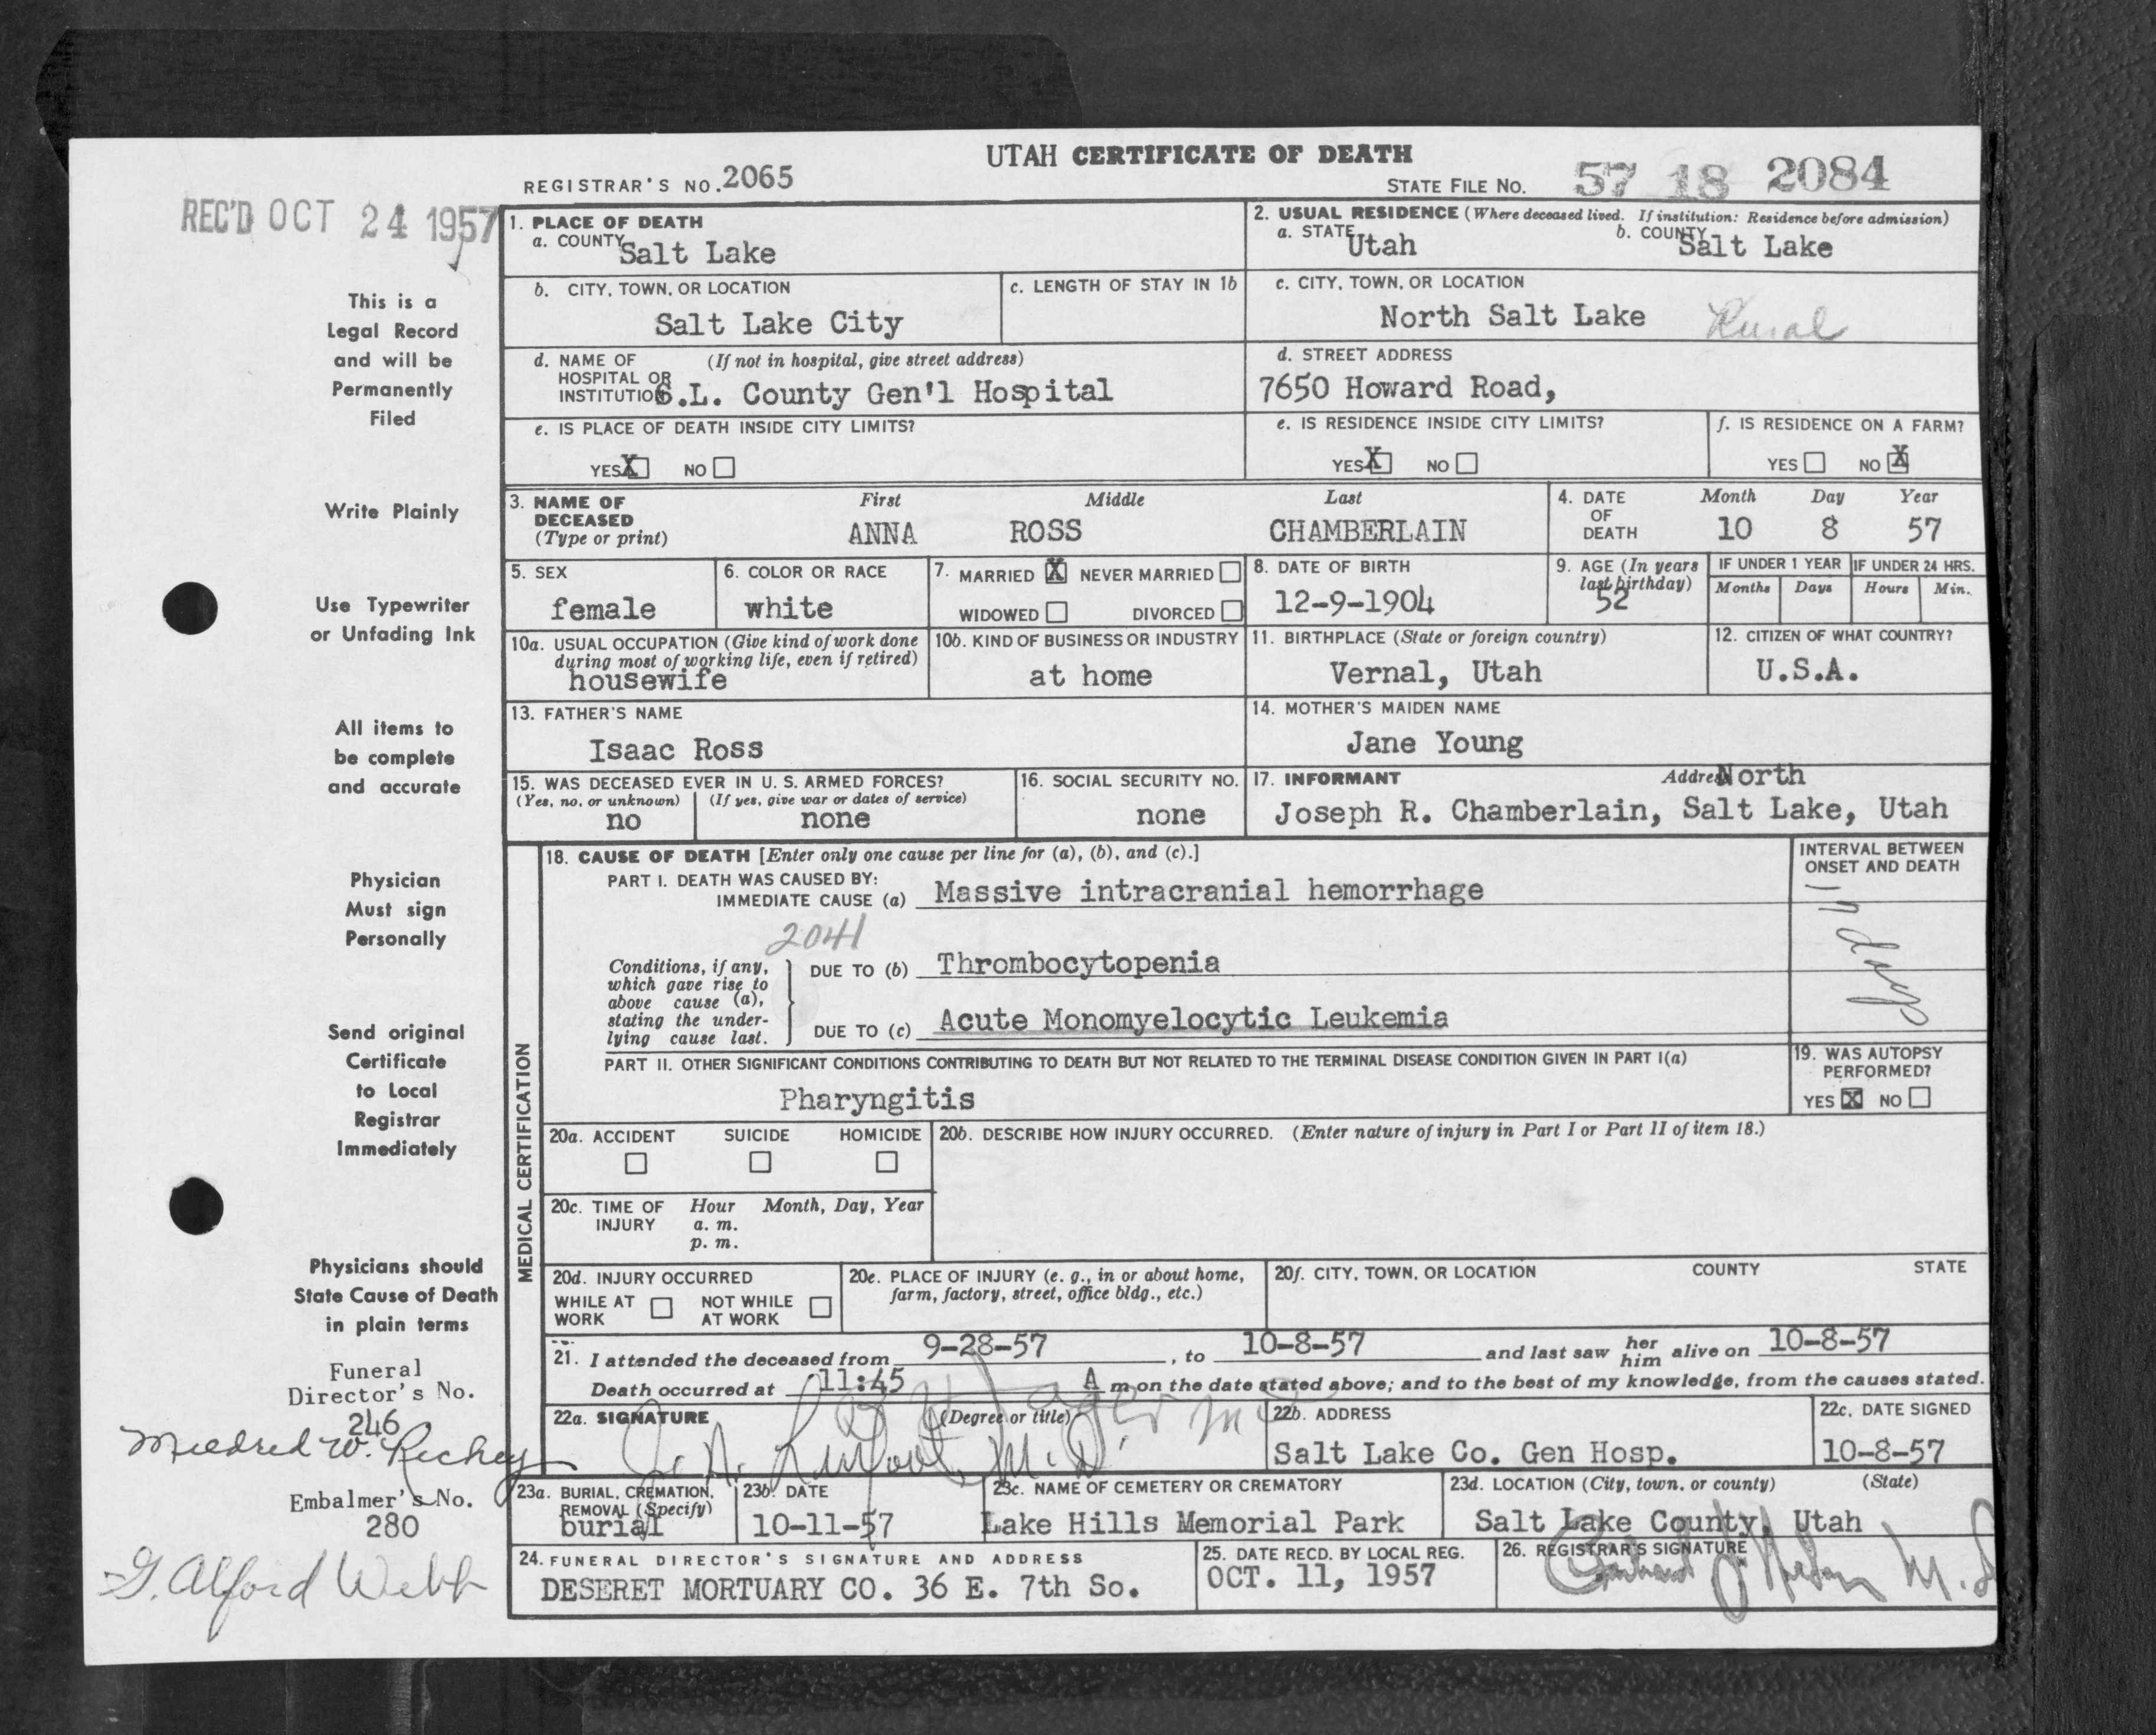 UTAH CERTIFICATE OF DEATH
REGISTRAR'S NO. 2065
STATE FILE NO. 57 18 2084
REC'D OCT 24 1957
This is a
Legal Record
and will be
Permanently
Filed
Write Plainly
Use Typewriter
or Unfading Ink
All items to
be complete
and accurate
Physician
Must sign
Personally
Send original
Certificate
to Local
Registrar
Immediately
Physicians should
State Cause of Death
in plain terms
Funeral
Director's No.
246
Mildred W. Richey
Embalmer's No.
280
G. Alford Webb
1. PLACE OF DEATH
a. COUNTY Salt Lake
2. USUAL RESIDENCE (Where deceased lived. If institution: Residence before admission)
a. STATE Utah b. COUNTY Salt Lake
b. CITY, TOWN, OR LOCATION
Salt Lake City
c. LENGTH OF STAY IN 1b
c. CITY, TOWN, OR LOCATION
North Salt Lake Rural
d. NAME OF (If not in hospital, give street address)
HOSPITAL OR
INSTITUTION S.L. County Gen'l Hospital
d. STREET ADDRESS
7650 Howard Road,
e. IS PLACE OF DEATH INSIDE CITY LIMITS?
YES X NO
e. IS RESIDENCE INSIDE CITY LIMITS?
YES X NO
f. IS RESIDENCE ON A FARM?
YES NO X
3. NAME OF DECEASED (Type or print)
First Middle Last
ANNA ROSS CHAMBERLAIN
4. DATE OF DEATH
Month Day Year
10 8 57
5. SEX
female
6. COLOR OR RACE
white
7. MARRIED X NEVER MARRIED
WIDOWED DIVORCED
8. DATE OF BIRTH
12-9-1904
9. AGE (In years
last birthday)
52
IF UNDER 1 YEAR
Months Days
IF UNDER 24 HRS.
Hours Min.
10a. USUAL OCCUPATION (Give kind of work done
during most of working life, even if retired)
housewife
10b. KIND OF BUSINESS OR INDUSTRY
at home
11. BIRTHPLACE (State or foreign country)
Vernal, Utah
12. CITIZEN OF WHAT COUNTRY?
U.S.A.
13. FATHER'S NAME
Isaac Ross
14. MOTHER'S MAIDEN NAME
Jane Young
15. WAS DECEASED EVER IN U. S. ARMED FORCES?
(Yes, no, or unknown) (If yes, give war or dates of service)
no none
16. SOCIAL SECURITY NO.
none
17. INFORMANT Address North
Joseph R. Chamberlain, Salt Lake, Utah
MEDICAL CERTIFICATION
18. CAUSE OF DEATH [Enter only one cause per line for (a), (b), and (c).]
PART I. DEATH WAS CAUSED BY:
IMMEDIATE CAUSE (a) Massive intracranial hemorrhage
2041
Conditions, if any,
which gave rise to
above cause (a),
stating the under-
lying cause last.
DUE TO (b) Thrombocytopenia
DUE TO (c) Acute Monomyelocytic Leukemia
INTERVAL BETWEEN
ONSET AND DEATH
days
PART II. OTHER SIGNIFICANT CONDITIONS CONTRIBUTING TO DEATH BUT NOT RELATED TO THE TERMINAL DISEASE CONDITION GIVEN IN PART I(a)
Pharyngitis
19. WAS AUTOPSY
PERFORMED?
YES X NO
20a. ACCIDENT SUICIDE HOMICIDE
20b. DESCRIBE HOW INJURY OCCURRED. (Enter nature of injury in Part I or Part II of item 18.)
20c. TIME OF INJURY
Hour Month, Day, Year
a. m.
p. m.
20d. INJURY OCCURRED
WHILE AT WORK NOT WHILE AT WORK
20e. PLACE OF INJURY (e. g., in or about home,
farm, factory, street, office bldg., etc.)
20f. CITY, TOWN, OR LOCATION COUNTY STATE
21. I attended the deceased from 9-28-57, to 10-8-57 and last saw her him alive on 10-8-57
Death occurred at 11:45 A m on the date stated above; and to the best of my knowledge, from the causes stated.
22a. SIGNATURE (Degree or title)
M.D.
22b. ADDRESS
Salt Lake Co. Gen Hosp.
22c. DATE SIGNED
10-8-57
23a. BURIAL, CREMATION,
REMOVAL (Specify)
burial
23b. DATE
10-11-57
23c. NAME OF CEMETERY OR CREMATORY
Lake Hills Memorial Park
23d. LOCATION (City, town, or county) (State)
Salt Lake County, Utah
24. FUNERAL DIRECTOR'S SIGNATURE AND ADDRESS
DESERET MORTUARY CO. 36 E. 7th So.
25. DATE RECD. BY LOCAL REG.
OCT. 11, 1957
26. REGISTRAR'S SIGNATURE